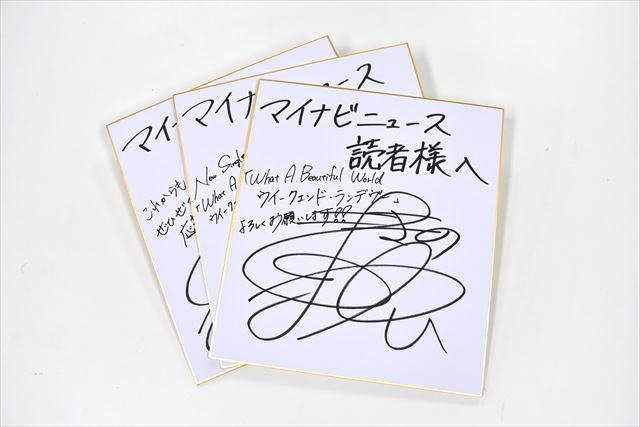 マイナビニュース
読者様へ
「What A Beautiful World
ウイークエンド・ランデヴー」
よろしくお願いします!!
マイナ
New Sin
「What A
ウイーク
マイ
これからも
ぜひぜひ
応